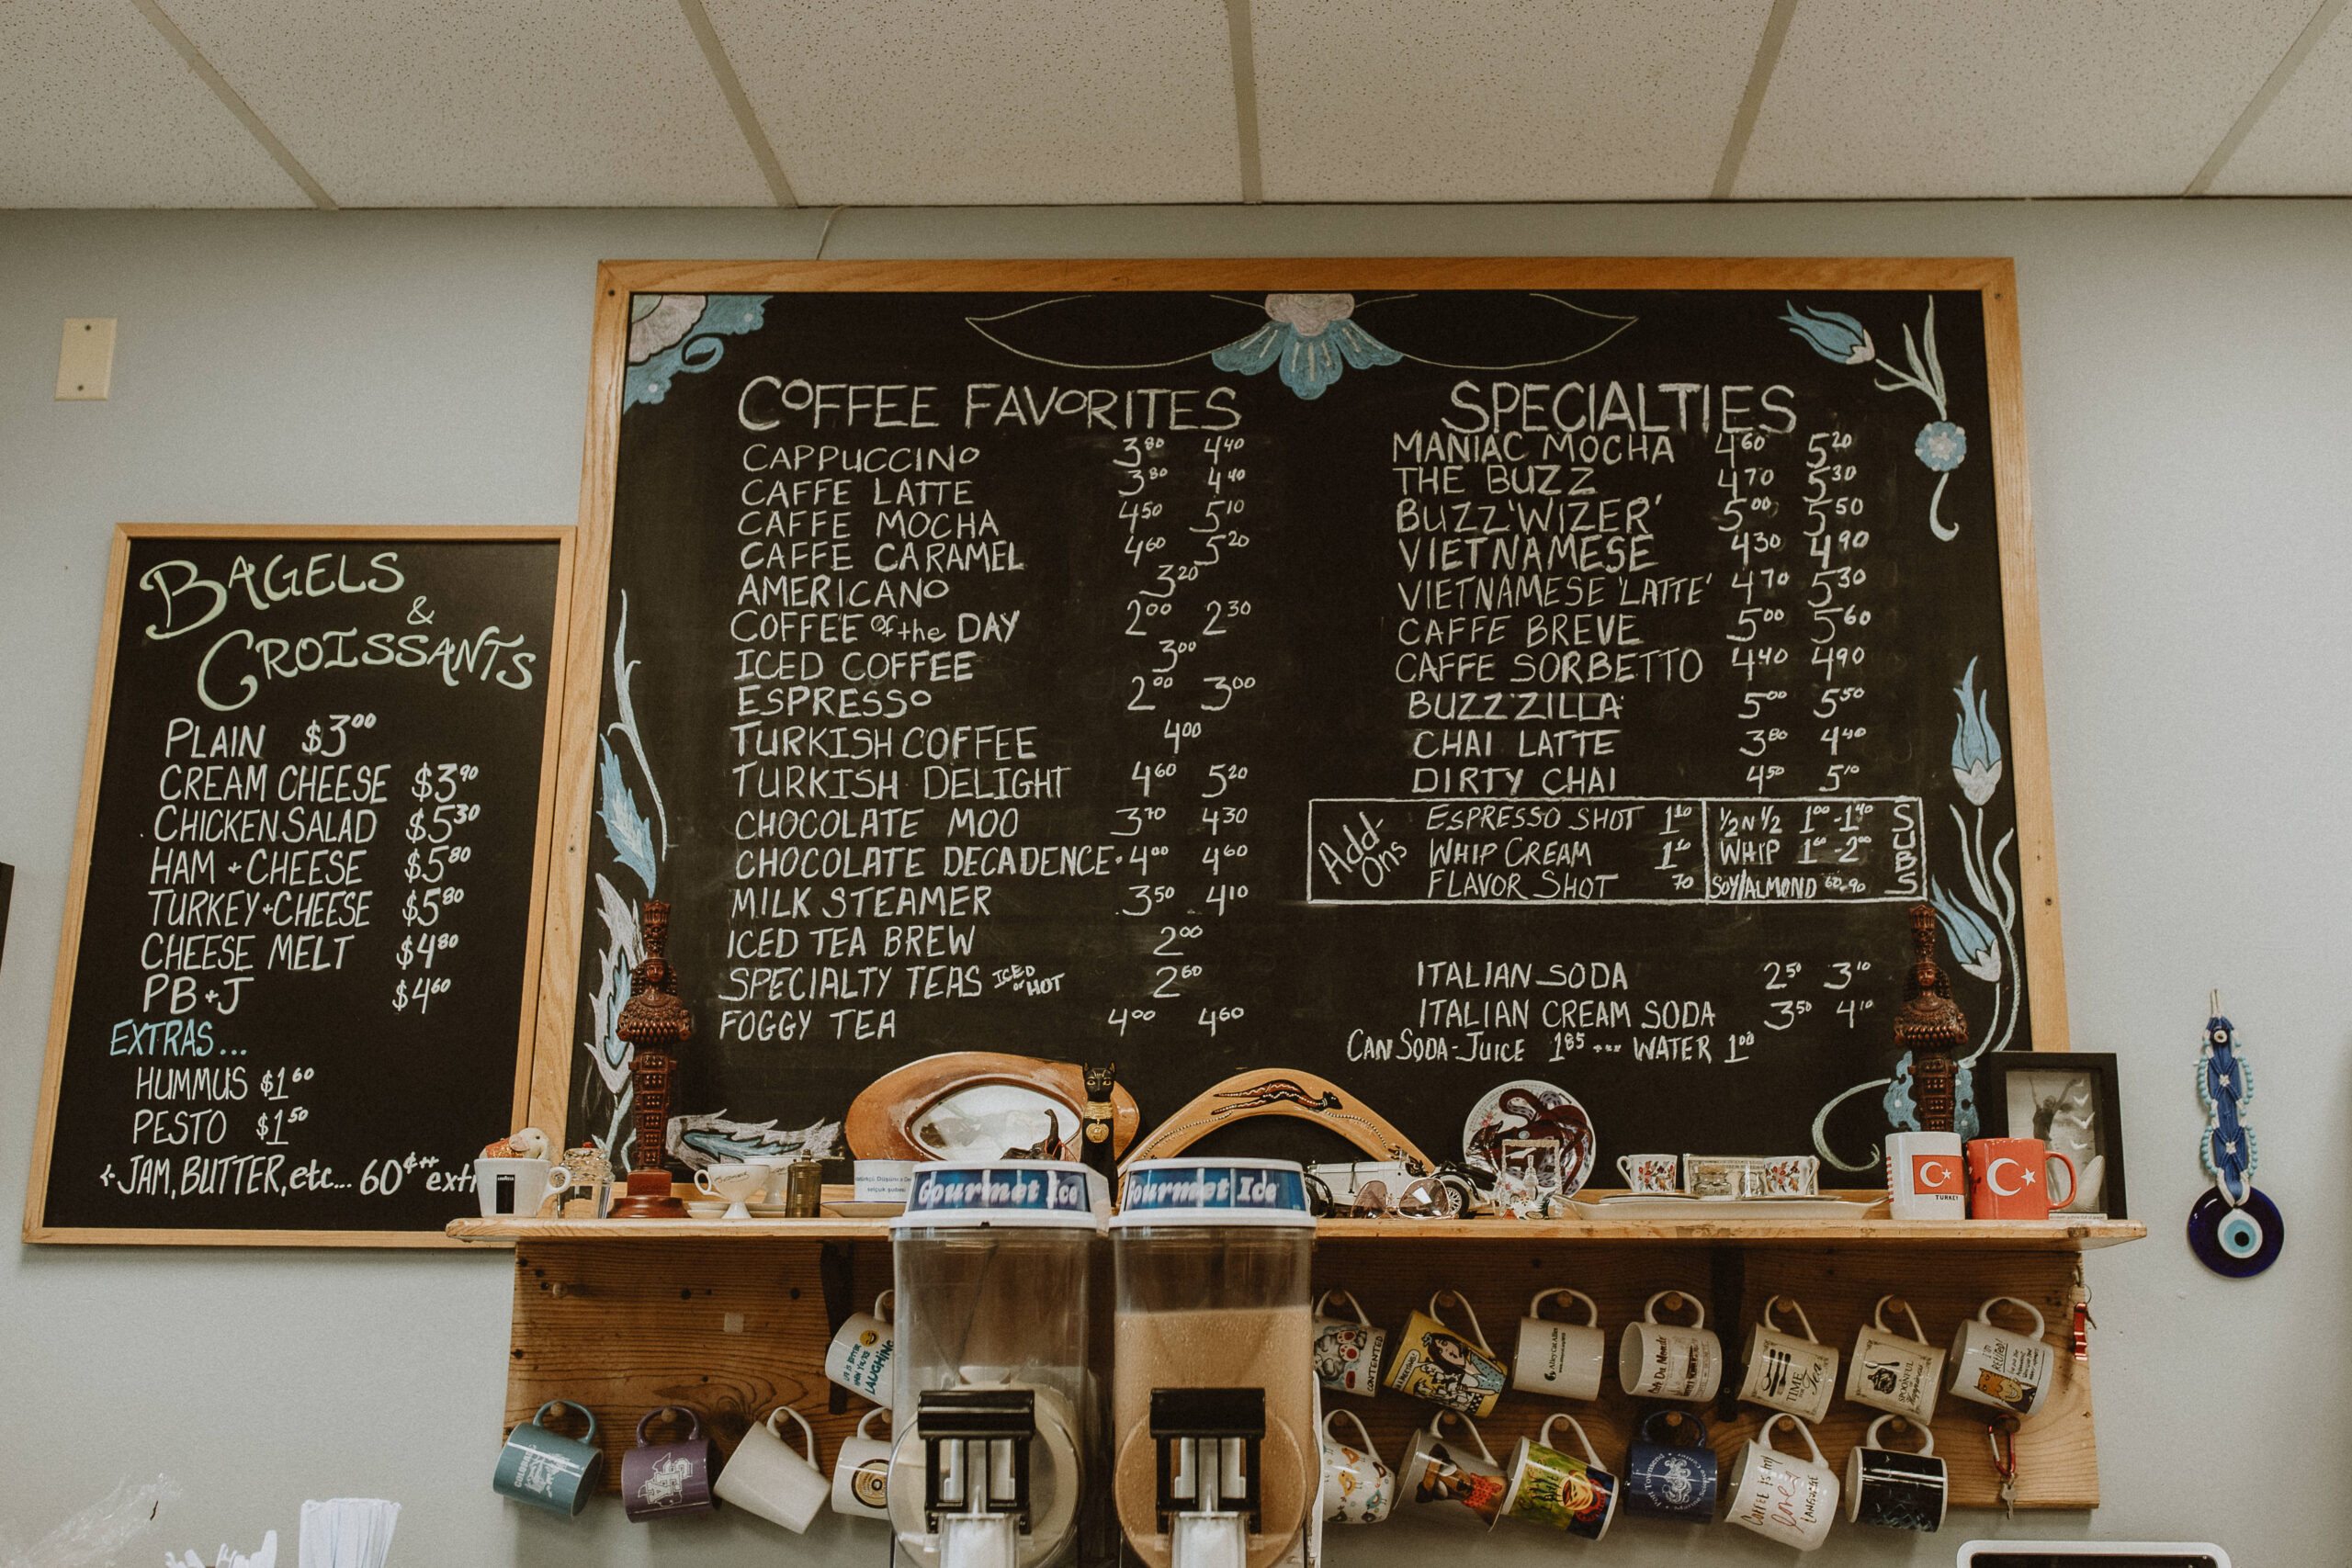 BAGELS
&
CROISSANTS
PLAIN $3.00
CREAM CHEESE $3.90
CHICKEN SALAD $5.30
HAM + CHEESE $5.80
TURKEY + CHEESE $5.80
CHEESE MELT $4.80
PB + J $4.60
EXTRAS...
HUMMUS $1.60
PESTO $1.50
JAM, BUTTER, etc... 60¢
COFFEE FAVORITES
CAPPUCCINO 3.80 4.40
CAFFE LATTE 3.80 4.40
CAFFE MOCHA 4.50 5.10
CAFFE CARAMEL 4.60 5.20
AMERICANO 3.20
COFFEE of the DAY 2.00 2.30
ICED COFFEE 3.00
ESPRESSO 2.00 3.00
TURKISH COFFEE 4.00
TURKISH DELIGHT 4.60 5.20
CHOCOLATE MOO 3.70 4.30
CHOCOLATE DECADENCE 4.00 4.60
MILK STEAMER 3.50 4.10
ICED TEA BREW 2.00
SPECIALTY TEAS ICED or HOT 2.60
FOGGY TEA 4.00 4.60
SPECIALTIES
MANIAC MOCHA 4.60 5.20
THE BUZZ 4.70 5.30
BUZZ 'WIZER' 5.00 5.50
VIETNAMESE 4.30 4.90
VIETNAMESE 'LATTE' 4.70 5.30
CAFFE BREVE 5.00 5.60
CAFFE SORBETTO 4.40 4.90
BUZZ'ZILLA' 5.00 5.50
CHAI LATTE 3.80 4.40
DIRTY CHAI 4.50 5.10
Add-Ons
ESPRESSO SHOT 1.10
WHIP CREAM 1.10
FLAVOR SHOT 70
SUBS
1/2 N 1/2 1.00-1.40
WHIP
SOY/ALMOND 60-90
ITALIAN SODA 2.50 3.10
ITALIAN CREAM SODA 3.50 4.10
CAN SODA-JUICE 1.85 --- WATER 1.00
Gourmet Ice
Gourmet Ice
TURKEY
LAUGHING
CONTENTED
TIME
Tea
SPOONFUL
COFFEE IS MY
Love
LANGUAGE